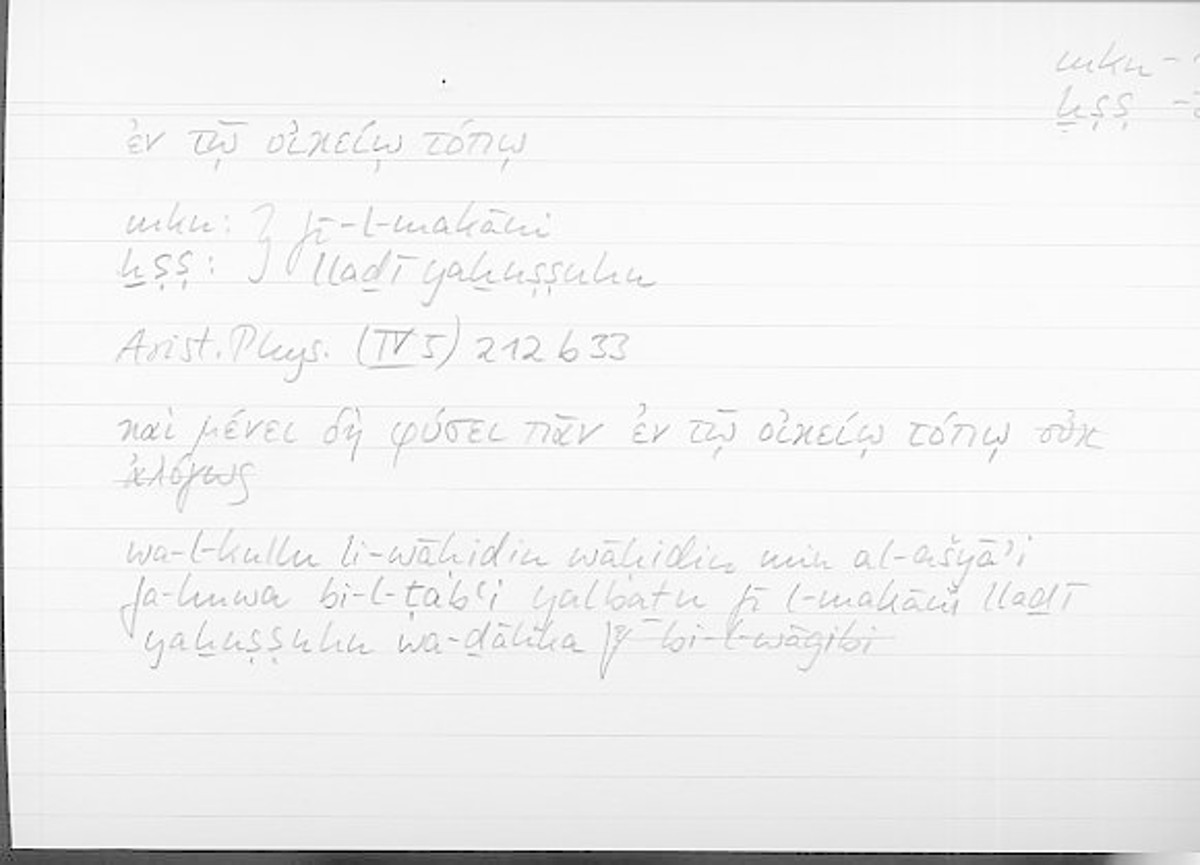 mkn -
ḫṣṣ -
ἐν τῷ οἰκείῳ τόπῳ
mkn: } fī-l-makāni
ḫṣṣ: } lladī yaḫuṣṣuhu
Arist. Phys. (IV 5) 212 b 33
καὶ μένει δὴ φύσει πᾶν ἐν τῷ οἰκείῳ τόπῳ οὐκ
ἀλόγως
wa-l-kullu li-wāḥidin wāḥidin min al-ašyāʾi
fa-huwa bi-l-ṭabʿi yalbaṯu fī l-makāni llaḏī
yaḫuṣṣuhu wa-ḏālika bi-l-wāǧibi